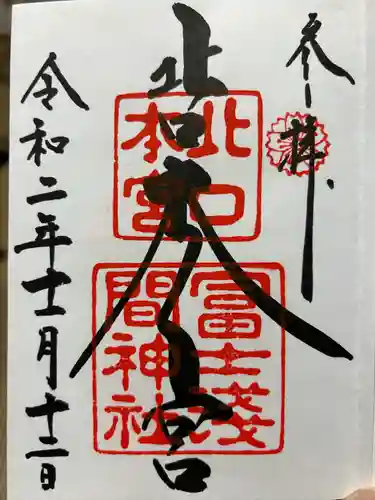 参拝
北口本宮
北口
本宮
冨士浅
間神社
令和二年十一月十二日